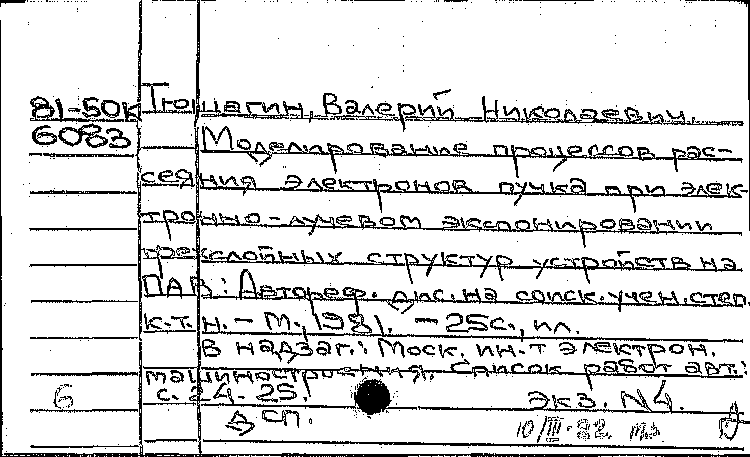 81-50к Тюшагин, Валерий Николаевич.
6083 Моделирование процессов рас-
сеяния электронов пучка при элек-
тронно-лучевом экспонировании
трехслойных структур устройств на
ПАВ: Автореф. дис. на соиск. учен. степ.
к.т.н. - М., 1981. - 25с., ил.
В надзаг.: Моск. ин-т электрон.
машиностроения. Список работ авт.:
6 с. 24-25. Экз. N4.
Дсп. 10/III-82